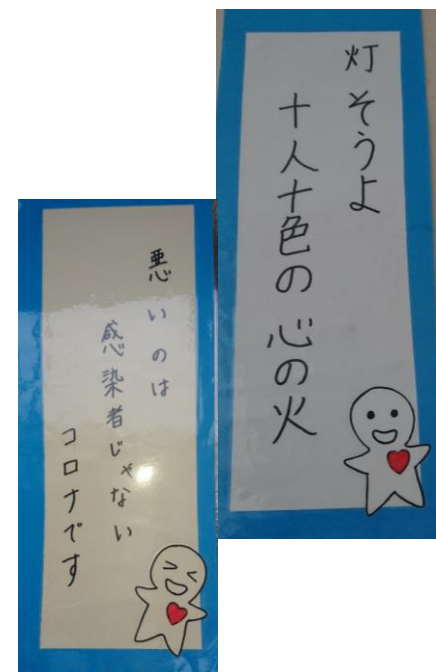 灯そうよ
十人十色の心の火
悪いのは
感染者じゃない
コロナです